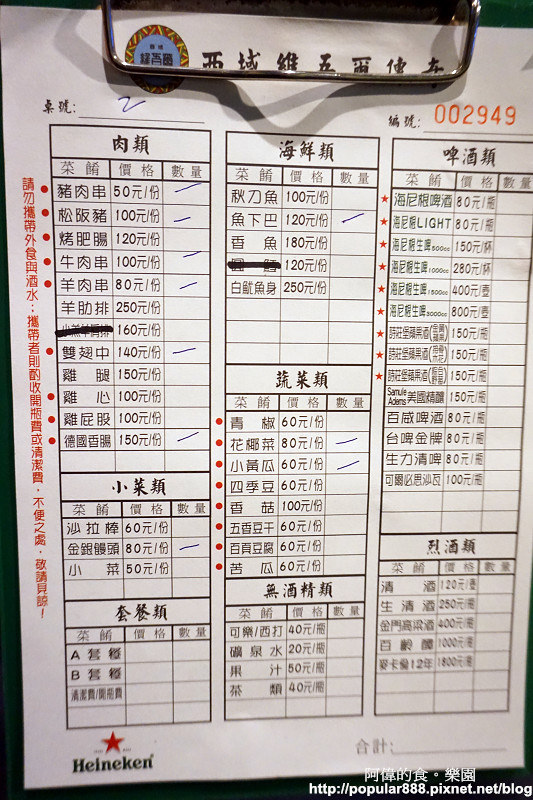 西域維吾爾傳奇
西域
維吾爾
桌號: 2
編號: 002949
請勿攜帶外食與酒水；攜帶者則酌收開瓶費或清潔費，不便之處，敬請見諒！
肉類
菜餚 價格 數量
豬肉串 50元/份
松阪豬 100元/份
烤肥腸 120元/份
牛肉串 100元/份
羊肉串 80元/份
羊肋排 250元/份
160元/份
雙翅中 140元/份
雞腿 150元/份
雞心 100元/份
雞屁股 100元/份
德國香腸 150元/份
小菜類
菜餚 價格 數量
沙拉棒 60元/份
金銀饅頭 80元/份
小菜 50元/份
套餐類
菜餚 價格 數量
A套餐
B套餐
清潔費/開瓶費
海鮮類
菜餚 價格 數量
秋刀魚 100元/份
魚下巴 120元/份
香魚 180元/份
120元/份
白魷魚身 250元/份
蔬菜類
菜餚 價格 數量
青椒 60元/份
花椰菜 80元/份
小黃瓜 60元/份
四季豆 60元/份
香菇 100元/份
五香豆干 60元/份
百頁豆腐 60元/份
苦瓜 60元/份
無酒精類
菜餚 價格 數量
可樂/西打 40元/瓶
礦泉水 20元/瓶
果汁 50元/瓶
茶類 40元/瓶
啤酒類
菜餚 價格 數量
海尼根啤酒 80元/瓶
海尼根LIGHT 80元/瓶
海尼根生啤500cc 150元/杯
海尼根生啤1000cc 280元/杯
海尼根生啤1500cc 400元/壹
海尼根生啤3000cc 800元/壹
詩莊堡蘋果酒 150元/瓶
詩莊堡蘋果酒 150元/瓶
詩莊堡蘋果酒 150元/瓶
Samule Adems 美國精釀 150元/瓶
百威啤酒 80元/瓶
台啤金牌 80元/瓶
生力清啤 80元/瓶
可爾必思沙瓦 100元/瓶
烈酒類
菜餚 價格 數量
清酒 120元/壹
生清酒 250元/瓶
金門高粱酒 400元/瓶
百齡罈 1000元/瓶
麥卡倫12年 1800元/瓶
合計:
Heineken
阿偉的食。樂園
http://popular888.pixnet.net/blog